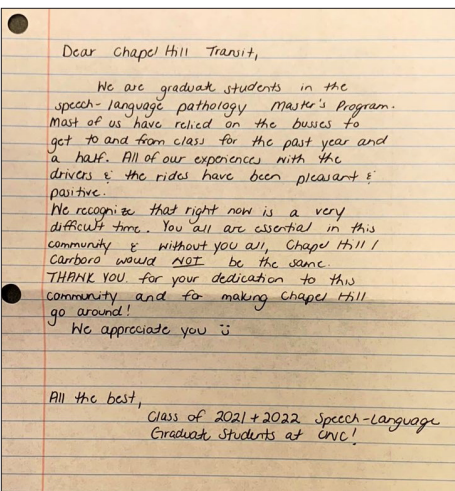 Dear Chapel Hill Transit,
We are graduate students in the
speech-language pathology Master's Program.
Most of us have relied on the busses to
get to and from class for the past year and
a half. All of our experiences with the
drivers & the rides have been pleasant &
positive.
We recognize that right now is a very
difficult time. You all are essential in this
community & without you all, Chapel Hill /
Carrboro would NOT be the same.
THANK YOU for your dedication to this
community and for making Chapel Hill
go around!
We appreciate you ü
All the best,
Class of 2021 + 2022 Speech-Language
Graduate Students at UNC!